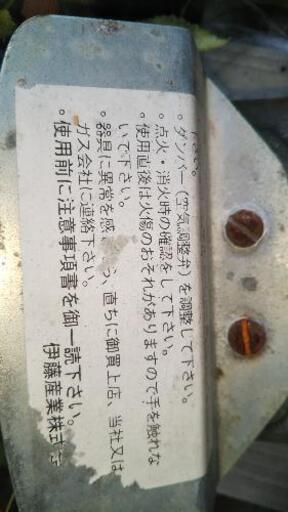 下さい。
。ダンパー(空気調整弁)を調整して下さい。
。点火・消火時の確認をして下さい。
。使用直後は火傷のおそれがありますので手を触れな
いで下さい。
。器具に異常を感 ら、直ちに御買上店、当社又は
ガス会社に連絡下さい。
。使用前に注意事項書を御一読下さい。
伊藤産業株式